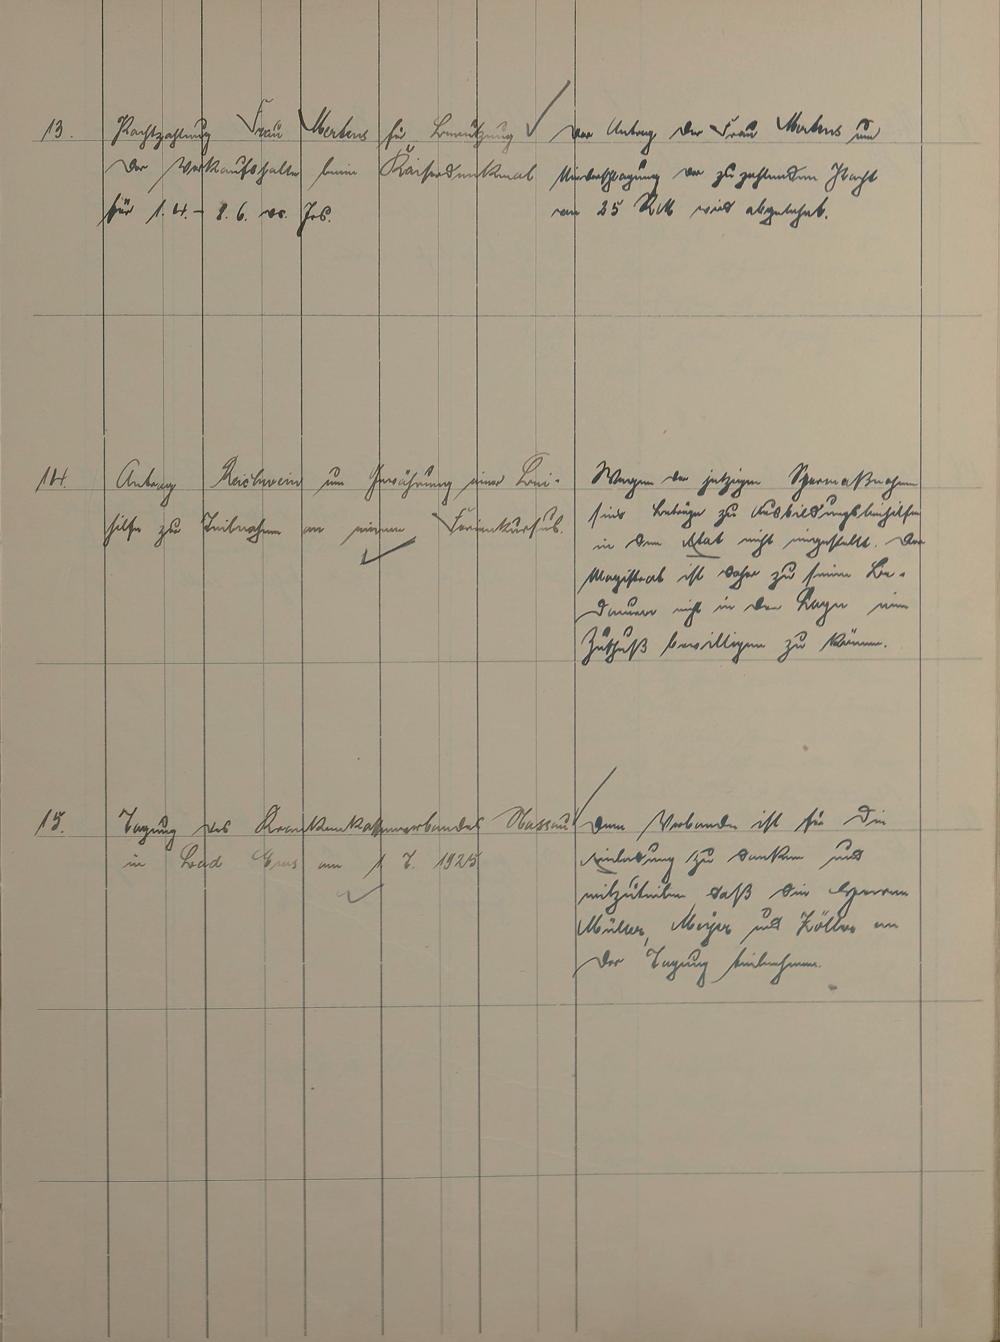 13.
Pachtzahlung Frau Mertens für Benutzung
der Verkaufshalle beim Kaiserdenkmal
für 1.4. - 8.6. ds. Jrs.
Der Antrag der Frau Mertens um
Niederschlagung der zu zahlenden Pacht
von 25 RM wird abgelehnt.
14.
Antrag Reichwein um Gewährung einer Bei-
hilfe zur Teilnahme an einem Ferienkursus.
Wegen der jetzigen Sparmaßnahmen
sind Beträge zu Ausbildungsbeihilfen
in den Etat nicht eingestellt. Der
Magistrat ist daher zu seinem Be-
dauern nicht in der Lage einen
Zuschuß bewilligen zu können.
15.
Tagung des Krankenkassenverbandes Nassau
in Bad Ems am 1. 7. 1925
Dem Verbande ist für die
Einladung zu danken und
mitzuteilen, daß die Herren
Müller, Meyer und Zöller an
der Tagung teilnehmen.